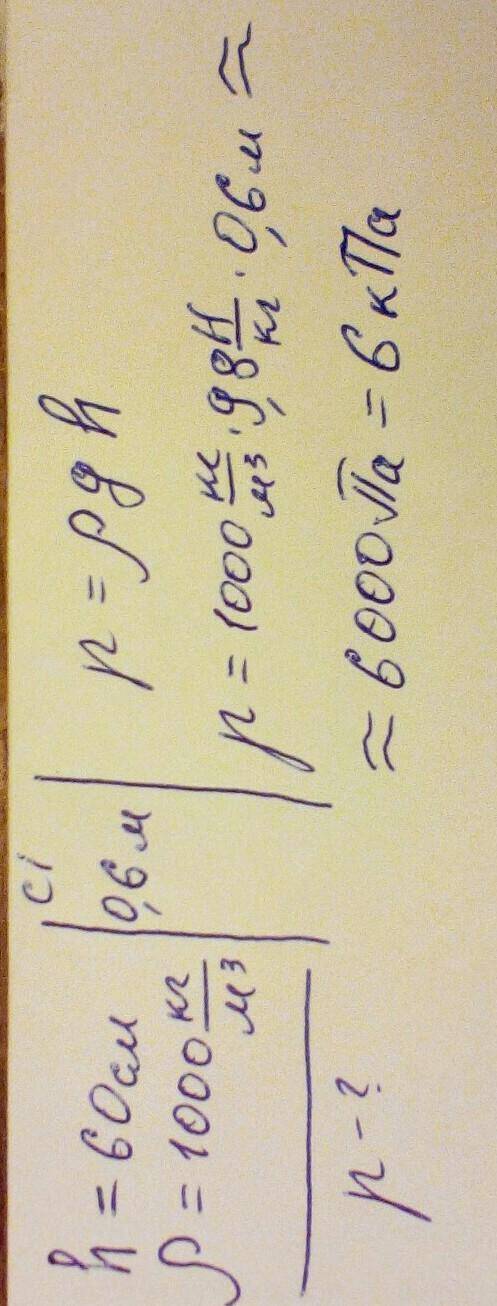 СІ
h = 60 см | 0,6 м
ρ = 1000 кг/м³
p - ?
p = ρgh
p = 1000 кг/м³ · 9,8 Н/кг · 0,6 м ≈
≈ 6000 Па = 6 кПа